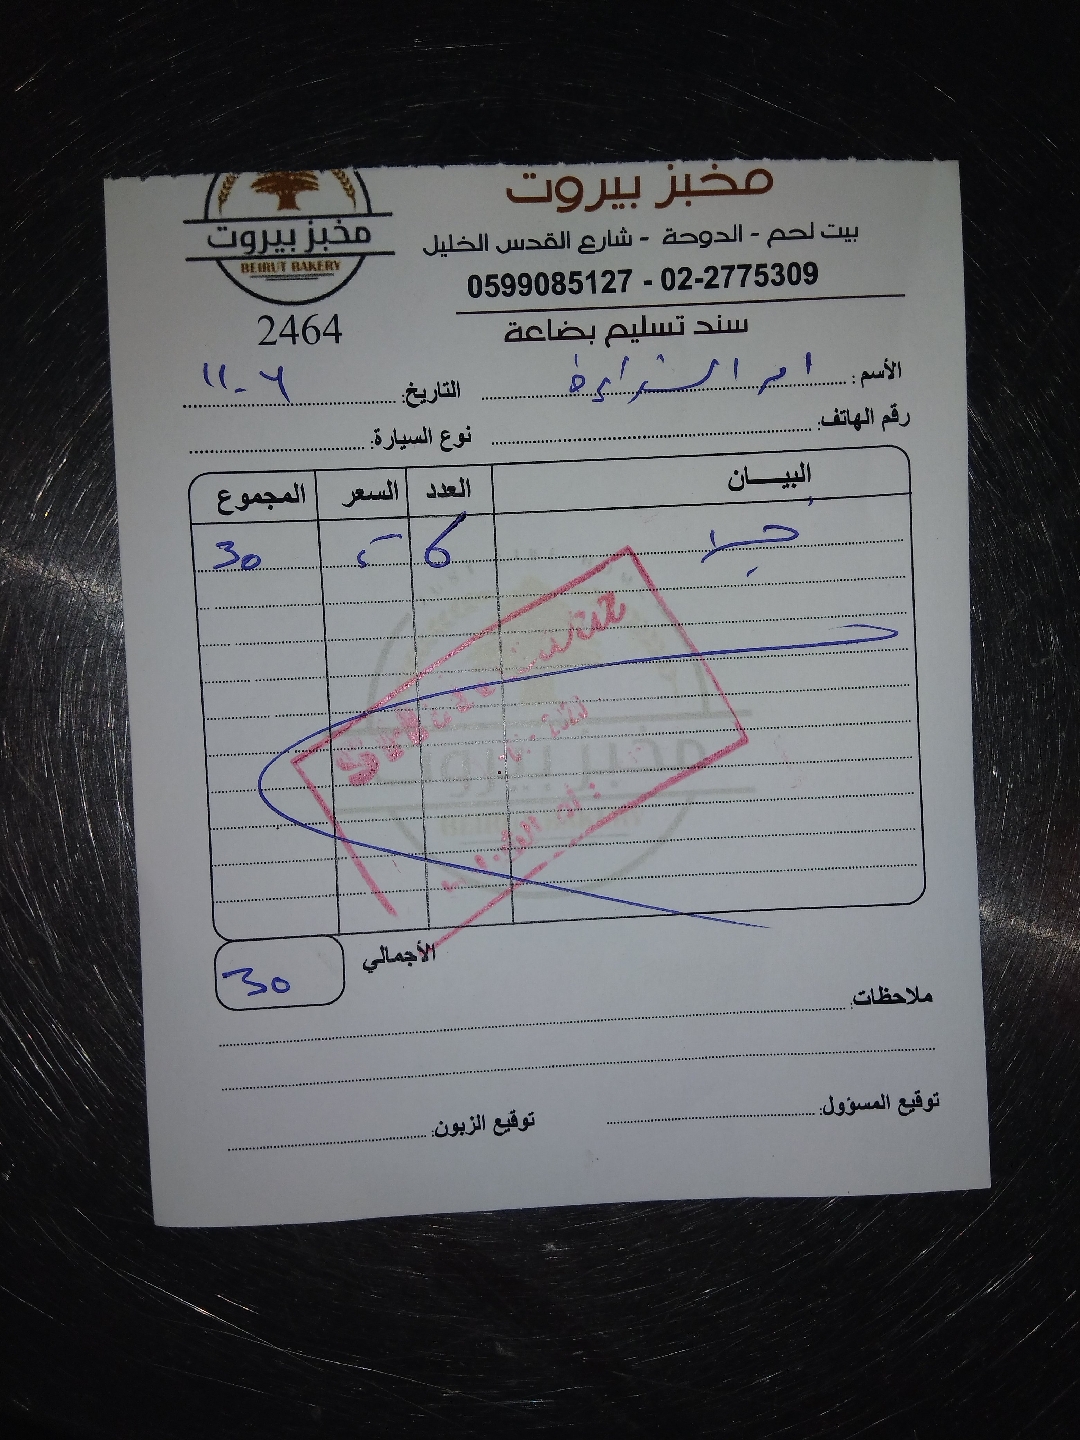 مخبز بيروت
BEIRUT BAKERY
2464
مخبز بيروت
بيت لحم - الدوحة - شارع القدس الخليل
0599085127 - 02-2775309
سند تسليم بضاعة
الأسم: ام
التاريخ: ٦-١١
رقم الهاتف:
نوع السيارة:
البيـــان العدد السعر المجموع
6 5 30
الأجمالي 30
ملاحظات:
توقيع المسؤول:
توقيع الزبون: